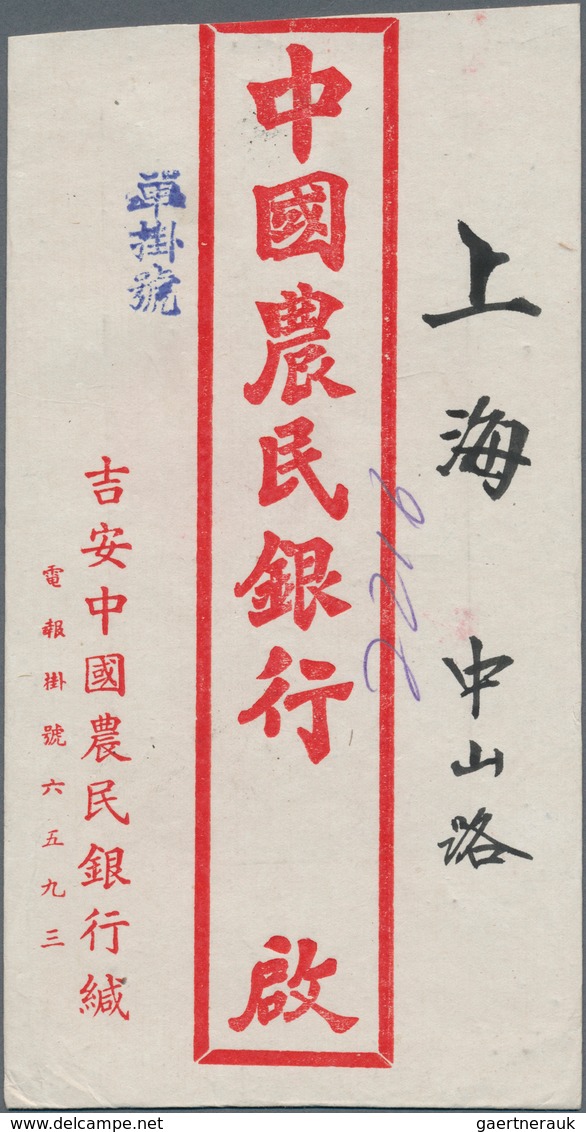 上海 中山路
中國農民銀行 啟
2216
單掛號
吉安中國農民銀行緘
電報掛號六五九三
DELCAMPE.COM
gaertnerauk